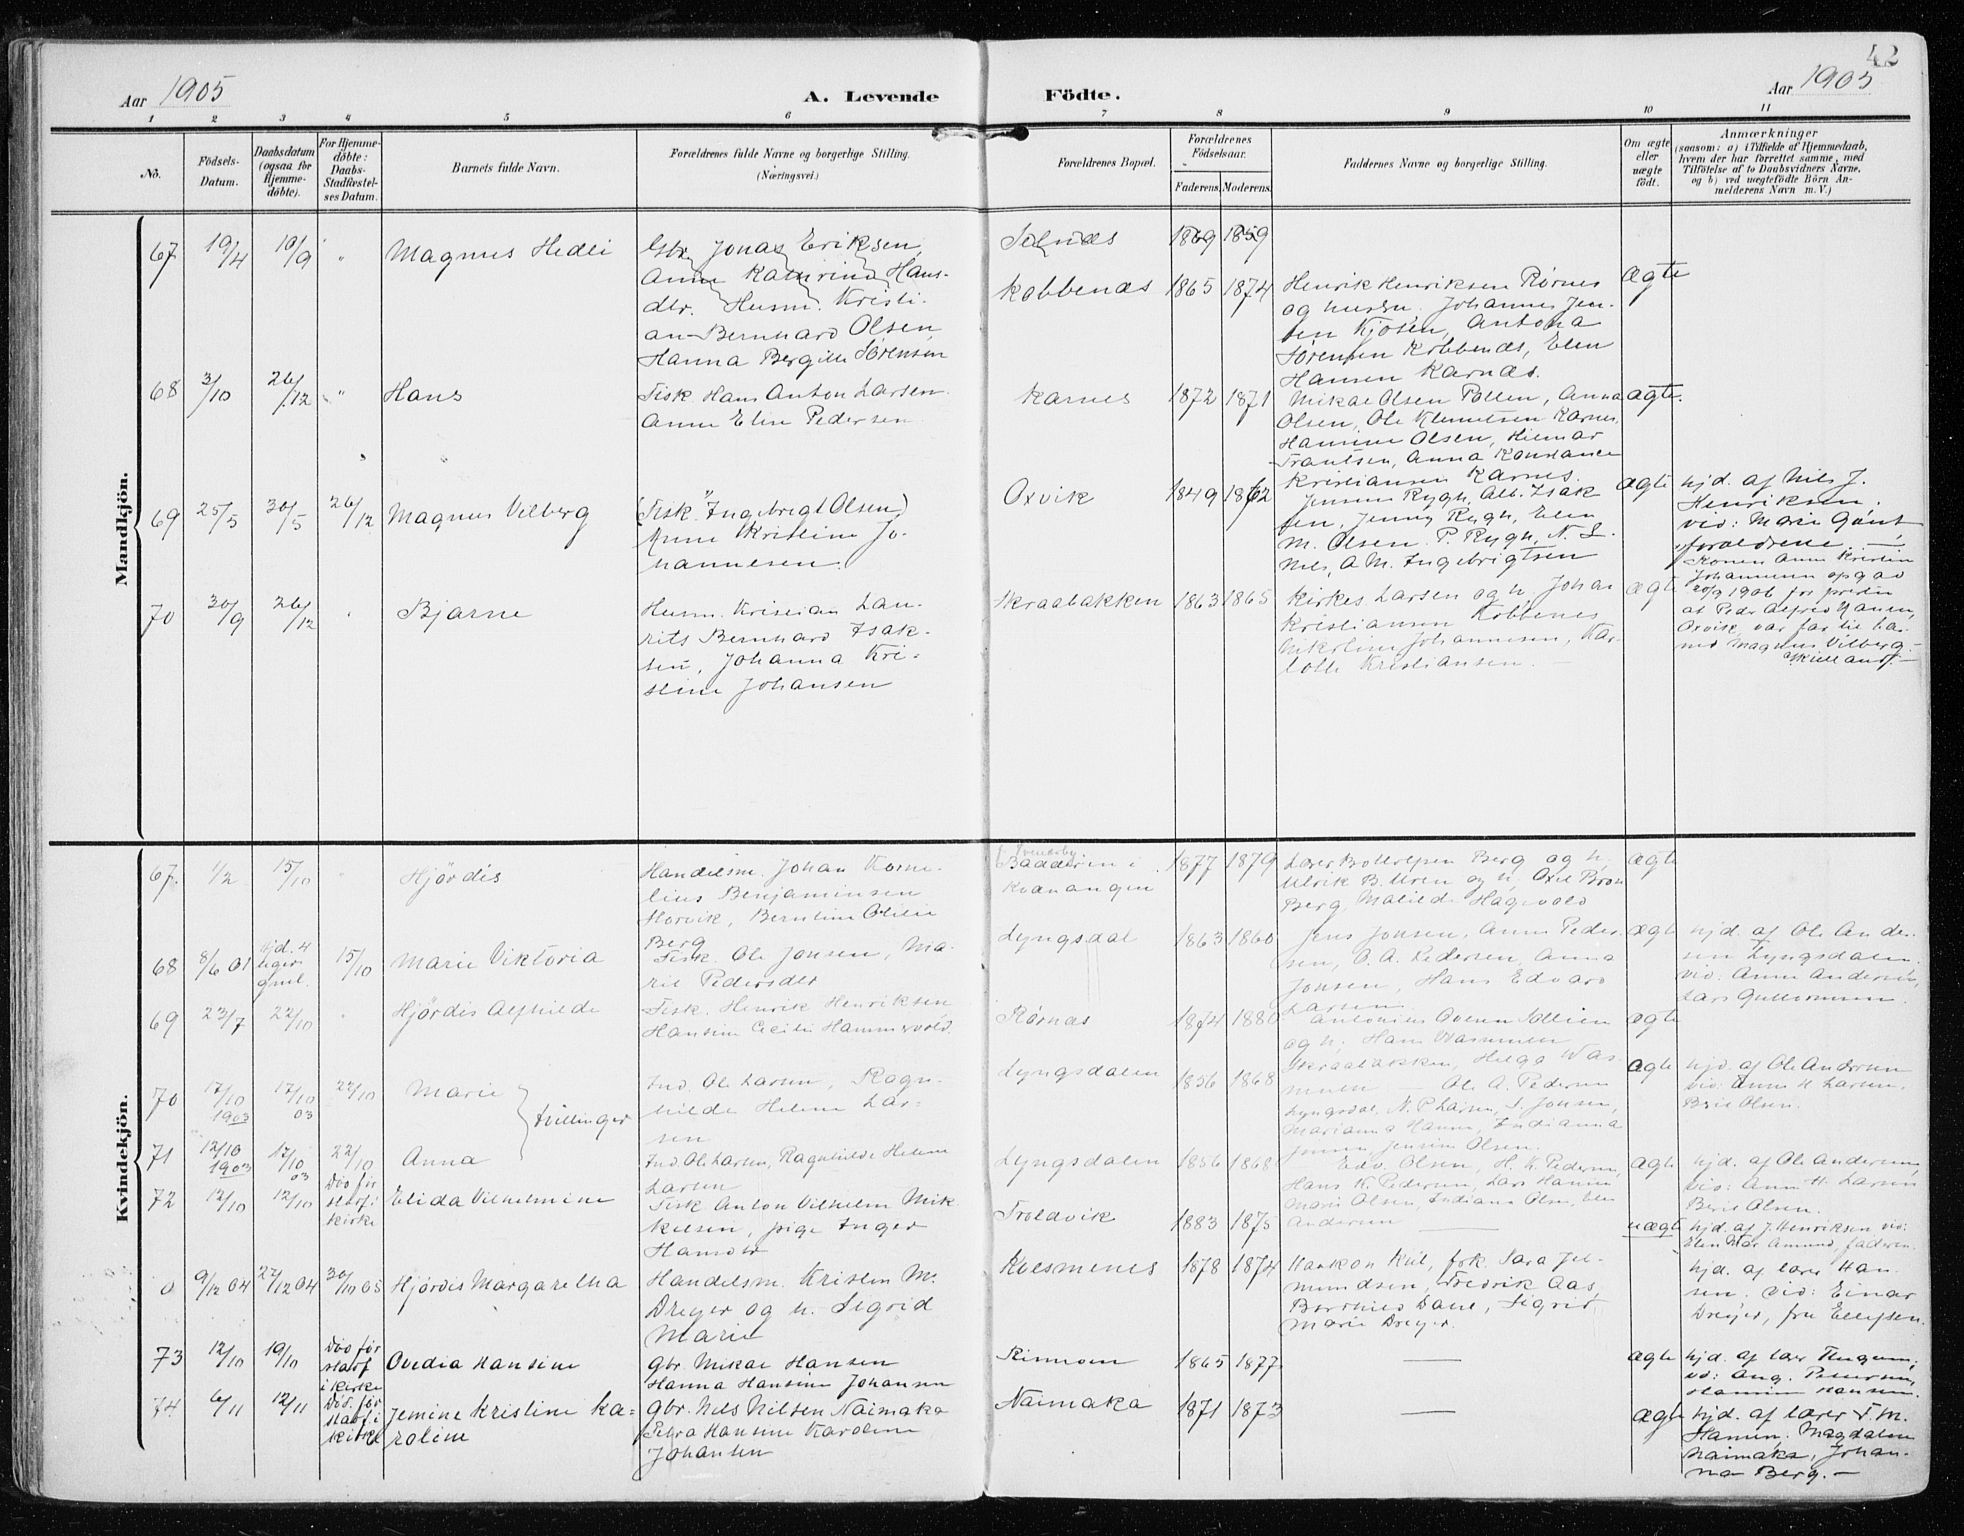 42
Aar 1905
A. Levende Födte.
Aar 1905
1 2 3 4 5 6 7 8 9 10 11
No.
Födsels-Datum.
Daabsdatum (ogsaa for Hjemmedöbte).
For Hjemmedöbte: Daabs-Stadfæstelses Datum.
Barnets fulde Navn.
Forældrenes fulde Navne og borgerlige Stilling. (Næringsvei.)
Forældrenes Bopæl.
Forældrenes Födselsaar.
Faderens. Moderens.
Faddernes Navne og borgerlige Stilling.
Om ægte eller uægte födt.
Anmærkninger
(saasom: a) i Tilfælde af Hjemmedaab,
hvem der har forrettet samme, med
Tilföielse af to Daabsvidners Navne,
og b) ved uægtefödte Börn An-
melderens Navn m. V.)
Mandkjön.
67 19/4 10/9 " Magnus Hedli
Gbr. Jonas Eriksen,
Anne Katrine Hans-
dtr. Husm. Kristi-
an Bernhard Olsen,
Hanna Bergitte Sørensen
Solnæs 1869 1859
Kobbenæs 1865 1874
Henrik Henriksen Rørnes
og hustru. Johannes Jen-
sen Kjosen, Antona
Sørensen Kobbenes, Elen
Hansen Karnæs.
ægte
68 3/10 26/12 " Hans
Fisk. Hans Anton Larsen
Anne Elise Pedersen
Karnes 1872 1871
Mikal Olsen Pollen, Anna
Olsen, Ole Klemetsen Karnes,
Hansine Olsen, Hilmar
Frantsen, Anna Konstance
Kristiansen Karnes.
ægte.
69 25/5 30/5 26/12 Magnus Vilberg
(Fisk. Ingebrigt Olsen)
Anne Kristine Jo-
hannesen.
Oxvik 1849 1862
Jensine Rygh, Alb. Isak
sen, Jenny Rygh, Elen
M. Olsen. P. Rygh, N. L.
Nils, A. M. Ingebrigtsen
ægte
hjd. af Nils J.
Henriksen.
vid: Marie
forældrene. —
Konen Anne Kristin
Johannesen opgav
20/9 1906 for presten
at Peder Alfred Hansen,
Oxvik, var far til bar-
net Magnus Vilberg. —
70 30/9 26/12 " Bjarne
Husm. Kristian Lau-
rits Bernhard Isak-
sen, Johanna Kri-
stine Johansen
Skraabakken 1863 1865
Kirkes. Larsen og h, Johan
Kristiansen Kobbenes
Nikoline Johannesen, Kar-
lotte Kristiansen. —
ægte
Kvindekjön.
67. 1/2 15/10 " Hjördis
Handelsm. Johan Korne-
lius Benjaminsen
Storvik, Berntine Otilie
Berg
Badderen i
Kvænangen
1877 1879
Lærer Berg og h,
Ulrik B. Uren og h, Axel Bron
Berg, Matilde Hagevold
ægte
68 8/6 01 hjd. 4 uger gml. 15/10 Marie Viktoria
Fisk. Ole Jonsen, Ma-
rit Pedersdtr
Lyngsdal 1863 1860
Jens Jonsen, Anne Peder-
sen, O. A. Pedersen, Anna
Jonsen, Hans Edvard
Larsen
ægte
hjd. af Ole Ander-
sen Lyngsdalen.
vid: Anne Andersen,
Lars Gullormsen.
69 23/7 22/10 " Hjördis Alfhilde
Fisk. Henrik Henriksen
Hansine Cecilie Hammervold
Rørnæs 1874 1880
Antonius Ovenn Sollien
og h; Hans Rasmussen
Skraabakken, Helga Ras-
mussen
ægte
70 17/10 1903 17/10 03 22/10 Marie
tvillinger
Ind. Ole Larsen, Ragn-
hilde Helene Lar-
sen
Lyngsdalen 1856 1868
— Ole A. Pedersen
Lyngsdal, N. P. Larsen, S. Jonsen,
Marianna Hansen, Indianna
Jonsen, Jensine Olsen.
ægte
hjd. af Ole Andersen
vid: Anne H. Larsen.
Berit Olsen.
71 12/10 1903 17/10 03 22/10 Anna
Ind. Ole Larsen, Ragnhilde Helene
Larsen
Lyngsdalen 1856 1868
Edv. Olsen, H. K. Pedersen,
Hans K. Pedersen, Lars Hansen
Marie Olsen, Indiana Olsen, Elen
Andersen —
ægte
hjd. af Ole Andersen,
vid: Anne H. Larsen
Berit Olsen.
72 12/10 12/10 Död før stadf. i kirke Elida Vilhelmine
Fisk Anton Vilhelm Mik-
kelsen, pige Inger
Hansdtr
Troldvik 1883 1875
uægte
hjd. af J. Henriksen vid:
Elen Mar. Amund, faderen.
0 9/12 04 27/12 04 30/10 05 Hjördis Margaretha
Handelsm. Kristen M.
Dreyer og h. Sigrid
Marie
Koesmenes 1878 1874
Haakon Kiil, frk. Sara Jel-
mundsen, Fredrik Aas,
Dane, Sigrid
Marie Dreyer.
hjd. af lærer Han-
sen. vid: Einar
Dreyer, fru Ellefsen.
73 12/10 19/10 Död før stadf. i kirke Ovedia Hansine
Gbr. Mikal Hansen
Hanna Hansine Johansen
1865 1877 —
ægte
hjd. af lærer
vid: Aug. Petersen,
Hansen.
74 6/11 12/11 Död før stadf. i kirke Jemine Kristine Ka-
roline
Gbr. Nils Nilsen Naimaka
Petra Hansine Karoline
Johansen
Naimaka 1871 1873 —
ægte
hjd. af lærer F. M.
Hansen. Magdalene
Naimaka, Johan-
na Berg. —